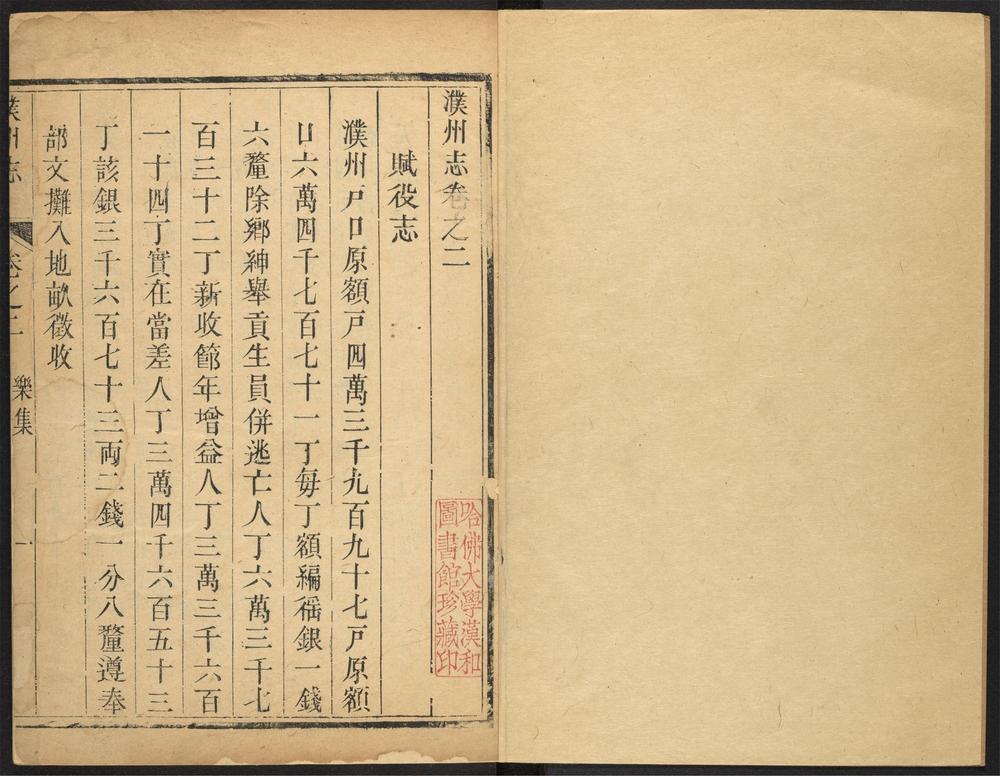 濮州志卷之二
賦役志
濮州戸口原額戸四萬三千九百九十七戸原額
口六萬四千七百七十一丁每丁額編徭銀一錢
六釐除鄉紳舉貢生員併逃亡人丁六萬三千七
百三十二丁新收節年增益人丁三萬三千六百
一十四丁實在當差人丁三萬四千六百五十三
丁該銀三千六百七十三両二錢一分八釐遵奉
部文攤入地畝徵收
濮州志
卷之二
樂集
一
哈佛大學漢和
圖書館珍藏印